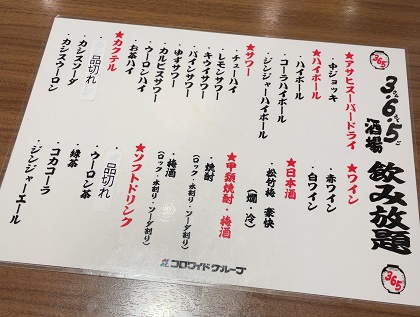 365
3.6.5
みろく
酒場
飲み放題
365
★アサヒスーパードライ
・中ジョッキ
★ハイボール
・ハイボール
・コーラハイボール
・ジンジャーハイボール
★サワー
・チューハイ
・レモンサワー
・キウイサワー
・ゆずサワー
・パインサワー
・カルピスサワー
・ウーロンハイ
・お茶ハイ
★カクテル
品切れ
・カシスソーダ
・カシスウーロン
★ワイン
・赤ワイン
・白ワイン
★日本酒
・松竹梅 豪快
(燗・冷)
★甲類焼酎・梅酒
・焼酎
(ロック・水割り・ソーダ割り)
・梅酒
(ロック・水割り・ソーダ割り)
★ソフトドリンク
品切れ
・ウーロン茶
・緑茶
・コカコーラ
・ジンジャーエール
コロワイドグループ